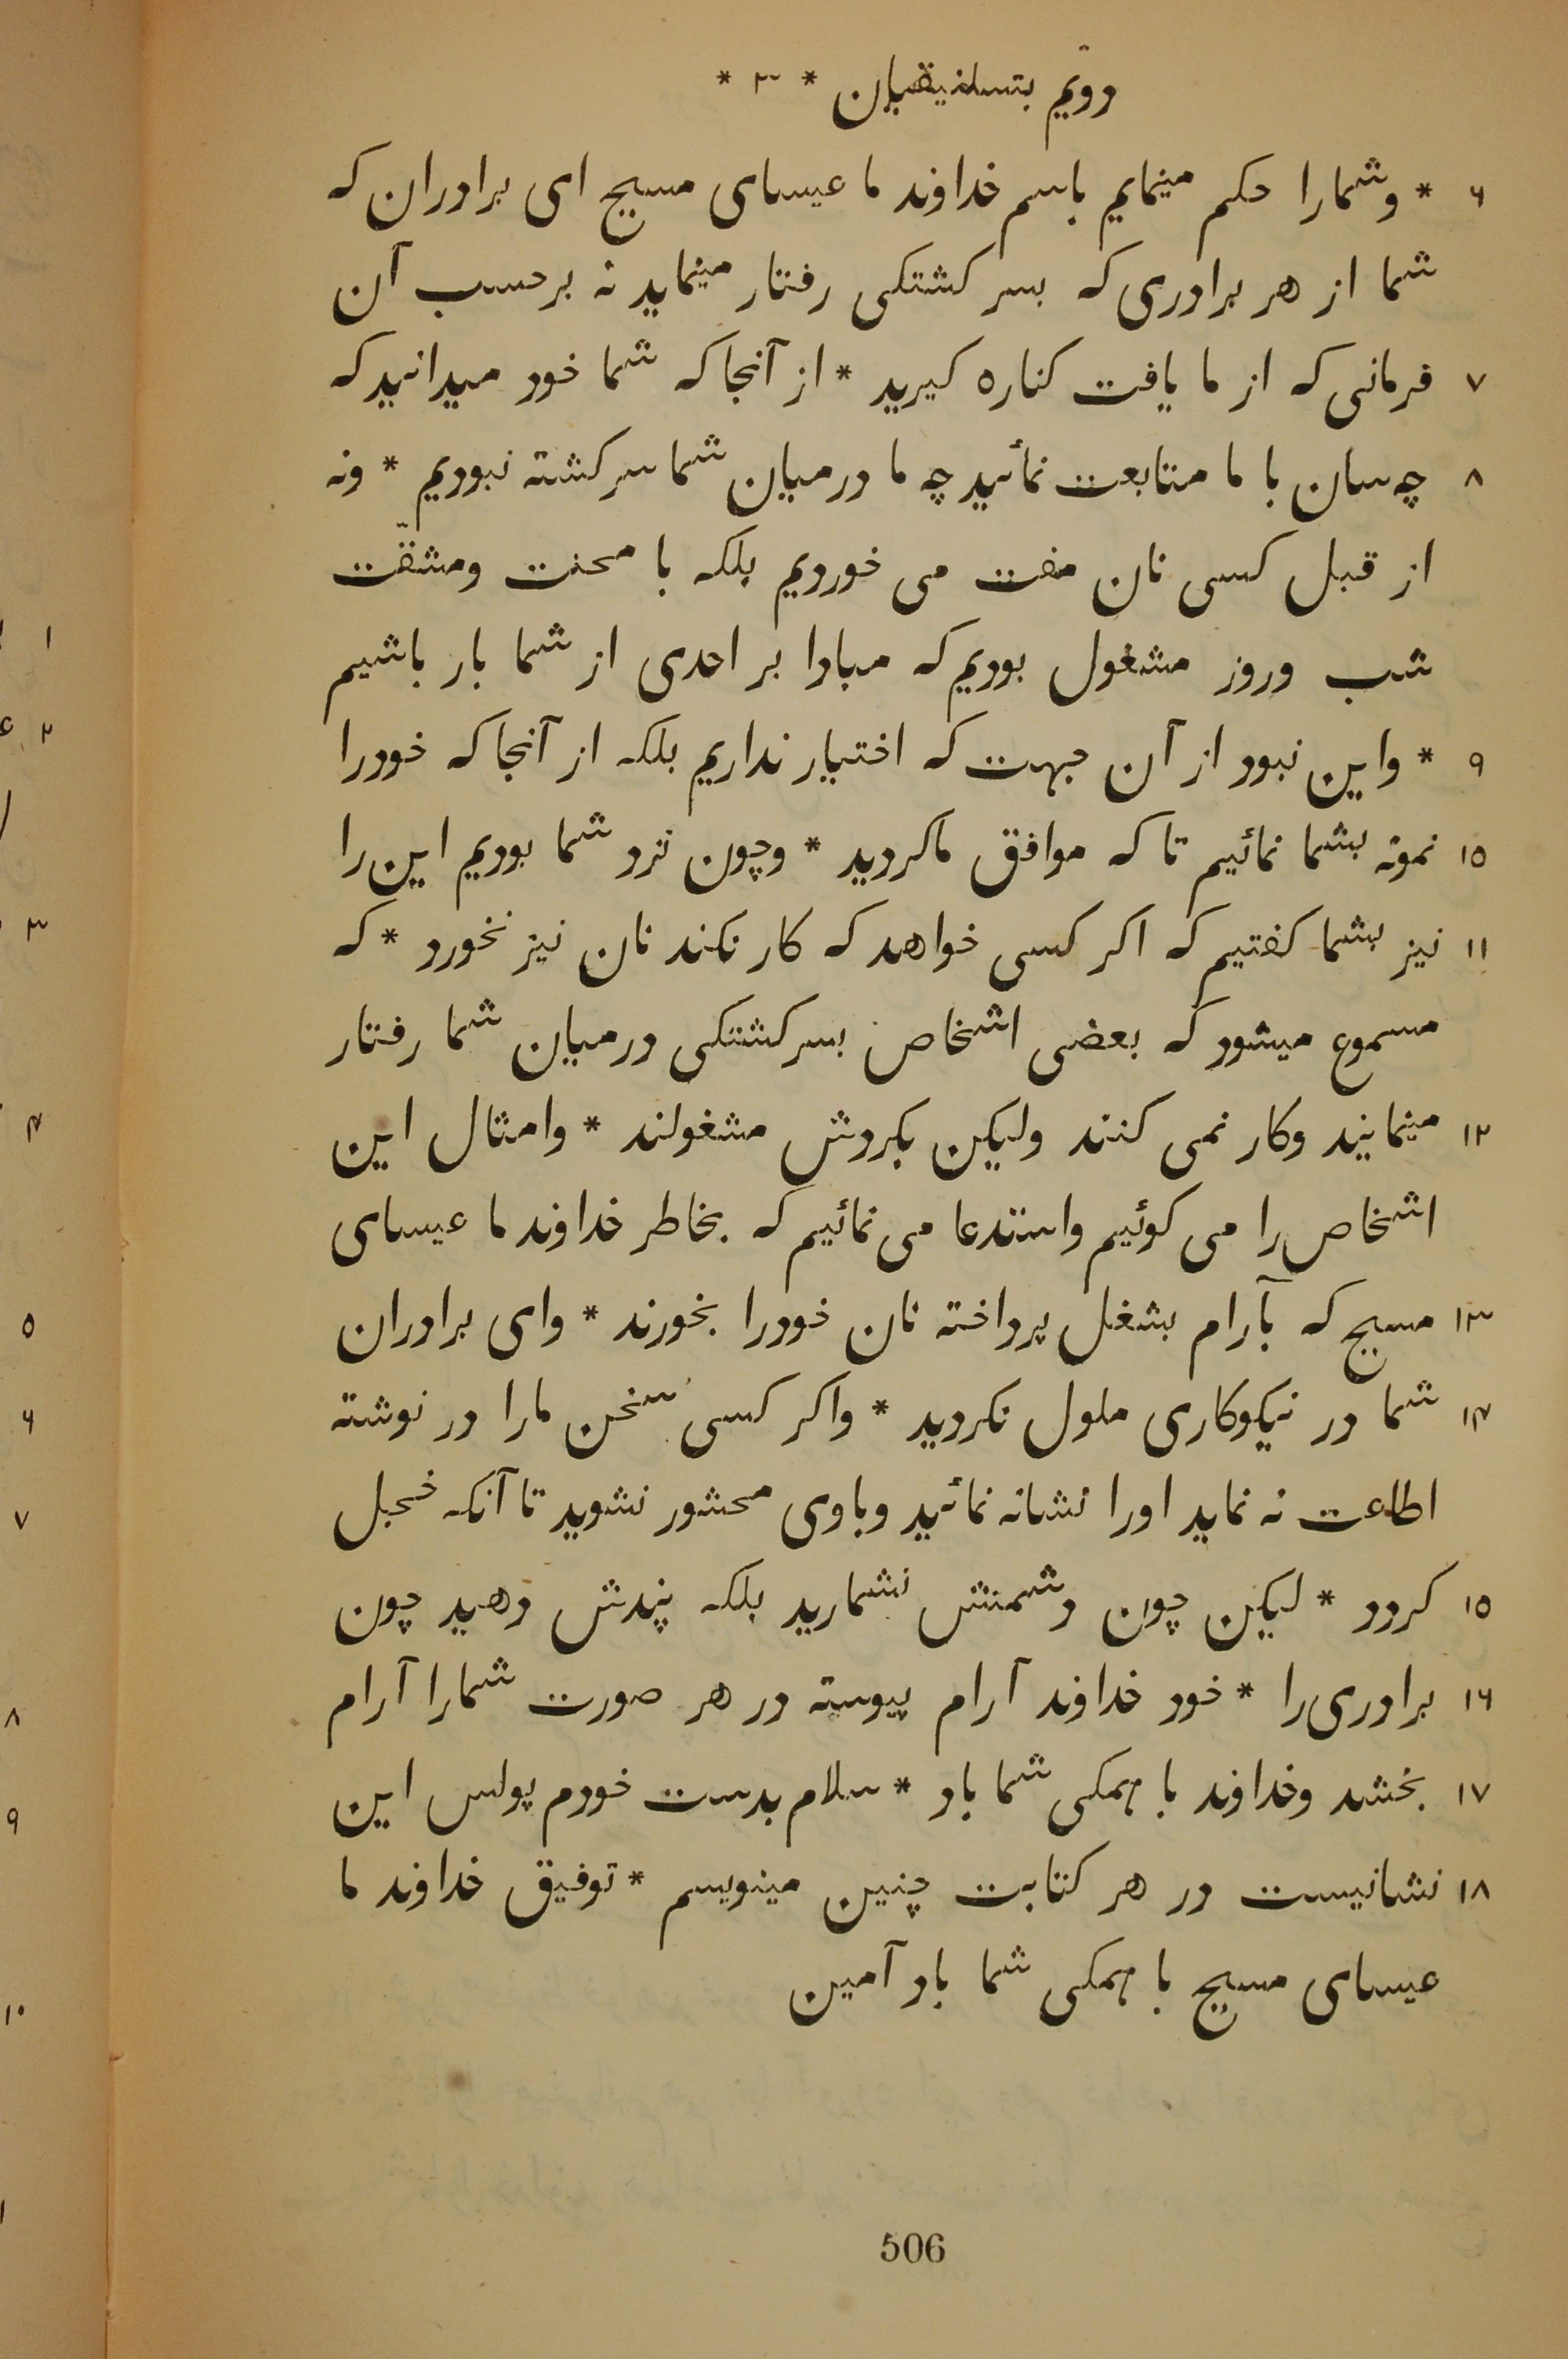 دویّم بتسلنیقیان * ۳ *
۶ * وشمارا حکم مینمایم باسم خداوند ما عیسای مسیح ای برادران که
شما از هر برادری که بسر کشتکی رفتار مینماید نه برحسب آن
۷ فرمانی که از ما یافت کناره کیرید * از آنجا که شما خود میدانید که
۸ چه سان با ما متابعت نمائید چه ما درمیان شما سرکشته نبودیم * ونه
از قبل کسی نان مفت می خوردیم بلکه با محنت ومشقّت
شب وروز مشغول بودیم که مبادا بر احدی از شما بار باشیم
۹ * واین نبود از آن جهت که اختیار نداریم بلکه از آنجا که خودرا
۱۰ نمونه بشما نمائیم تا که موافق ماکردید * وچون نزد شما بودیم این را
۱۱ نیز بشما کفتیم که اکر کسی خواهد که کار نکند نان نیز نخورد * که
مسموع میشود که بعضی اشخاص بسرکشتکی درمیان شما رفتار
۱۲ مینمایند وکار نمی کنند ولیکن بکردش مشغولند * وامثال این
اشخاص را می کوئیم واستدعا می نمائیم که بخاطر خداوند ما عیسای
۱۳ مسیح که بآرام بشغل پرداخته نان خودرا بخورند * وای برادران
۱۴ شما در نیکوکاری ملول نکردید * واکر کسی سخن مارا در نوشته
اطاعت نه نماید اورا نشانه نمائید وباوی محشور نشوید تا آنکه خجل
۱۵ کردد * لیکن چون دشمنش نشمارید بلکه پندش دهید چون
۱۶ برادری را * خود خداوند آرام پیوسته در هر صورت شمارا آرام
۱۷ بخشد وخداوند با همکی شما باد * سلام بدست خودم پولس این
۱۸ نشانیست در هر کتابت چنین مینویسم * توفیق خداوند ما
عیسای مسیح با همکی شما باد آمین
506
۱
۲
۳
۴
۵
۶
۷
۸
۹
۱۰